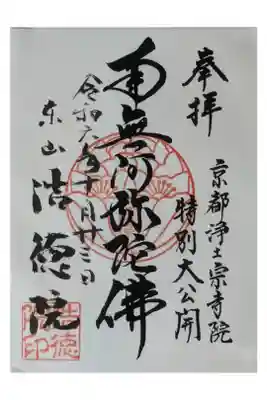 奉拝
京都浄土宗寺院
特別大公開
南無阿弥陀佛
令和六年十月廿三日
東山 浩徳院
浩徳院印